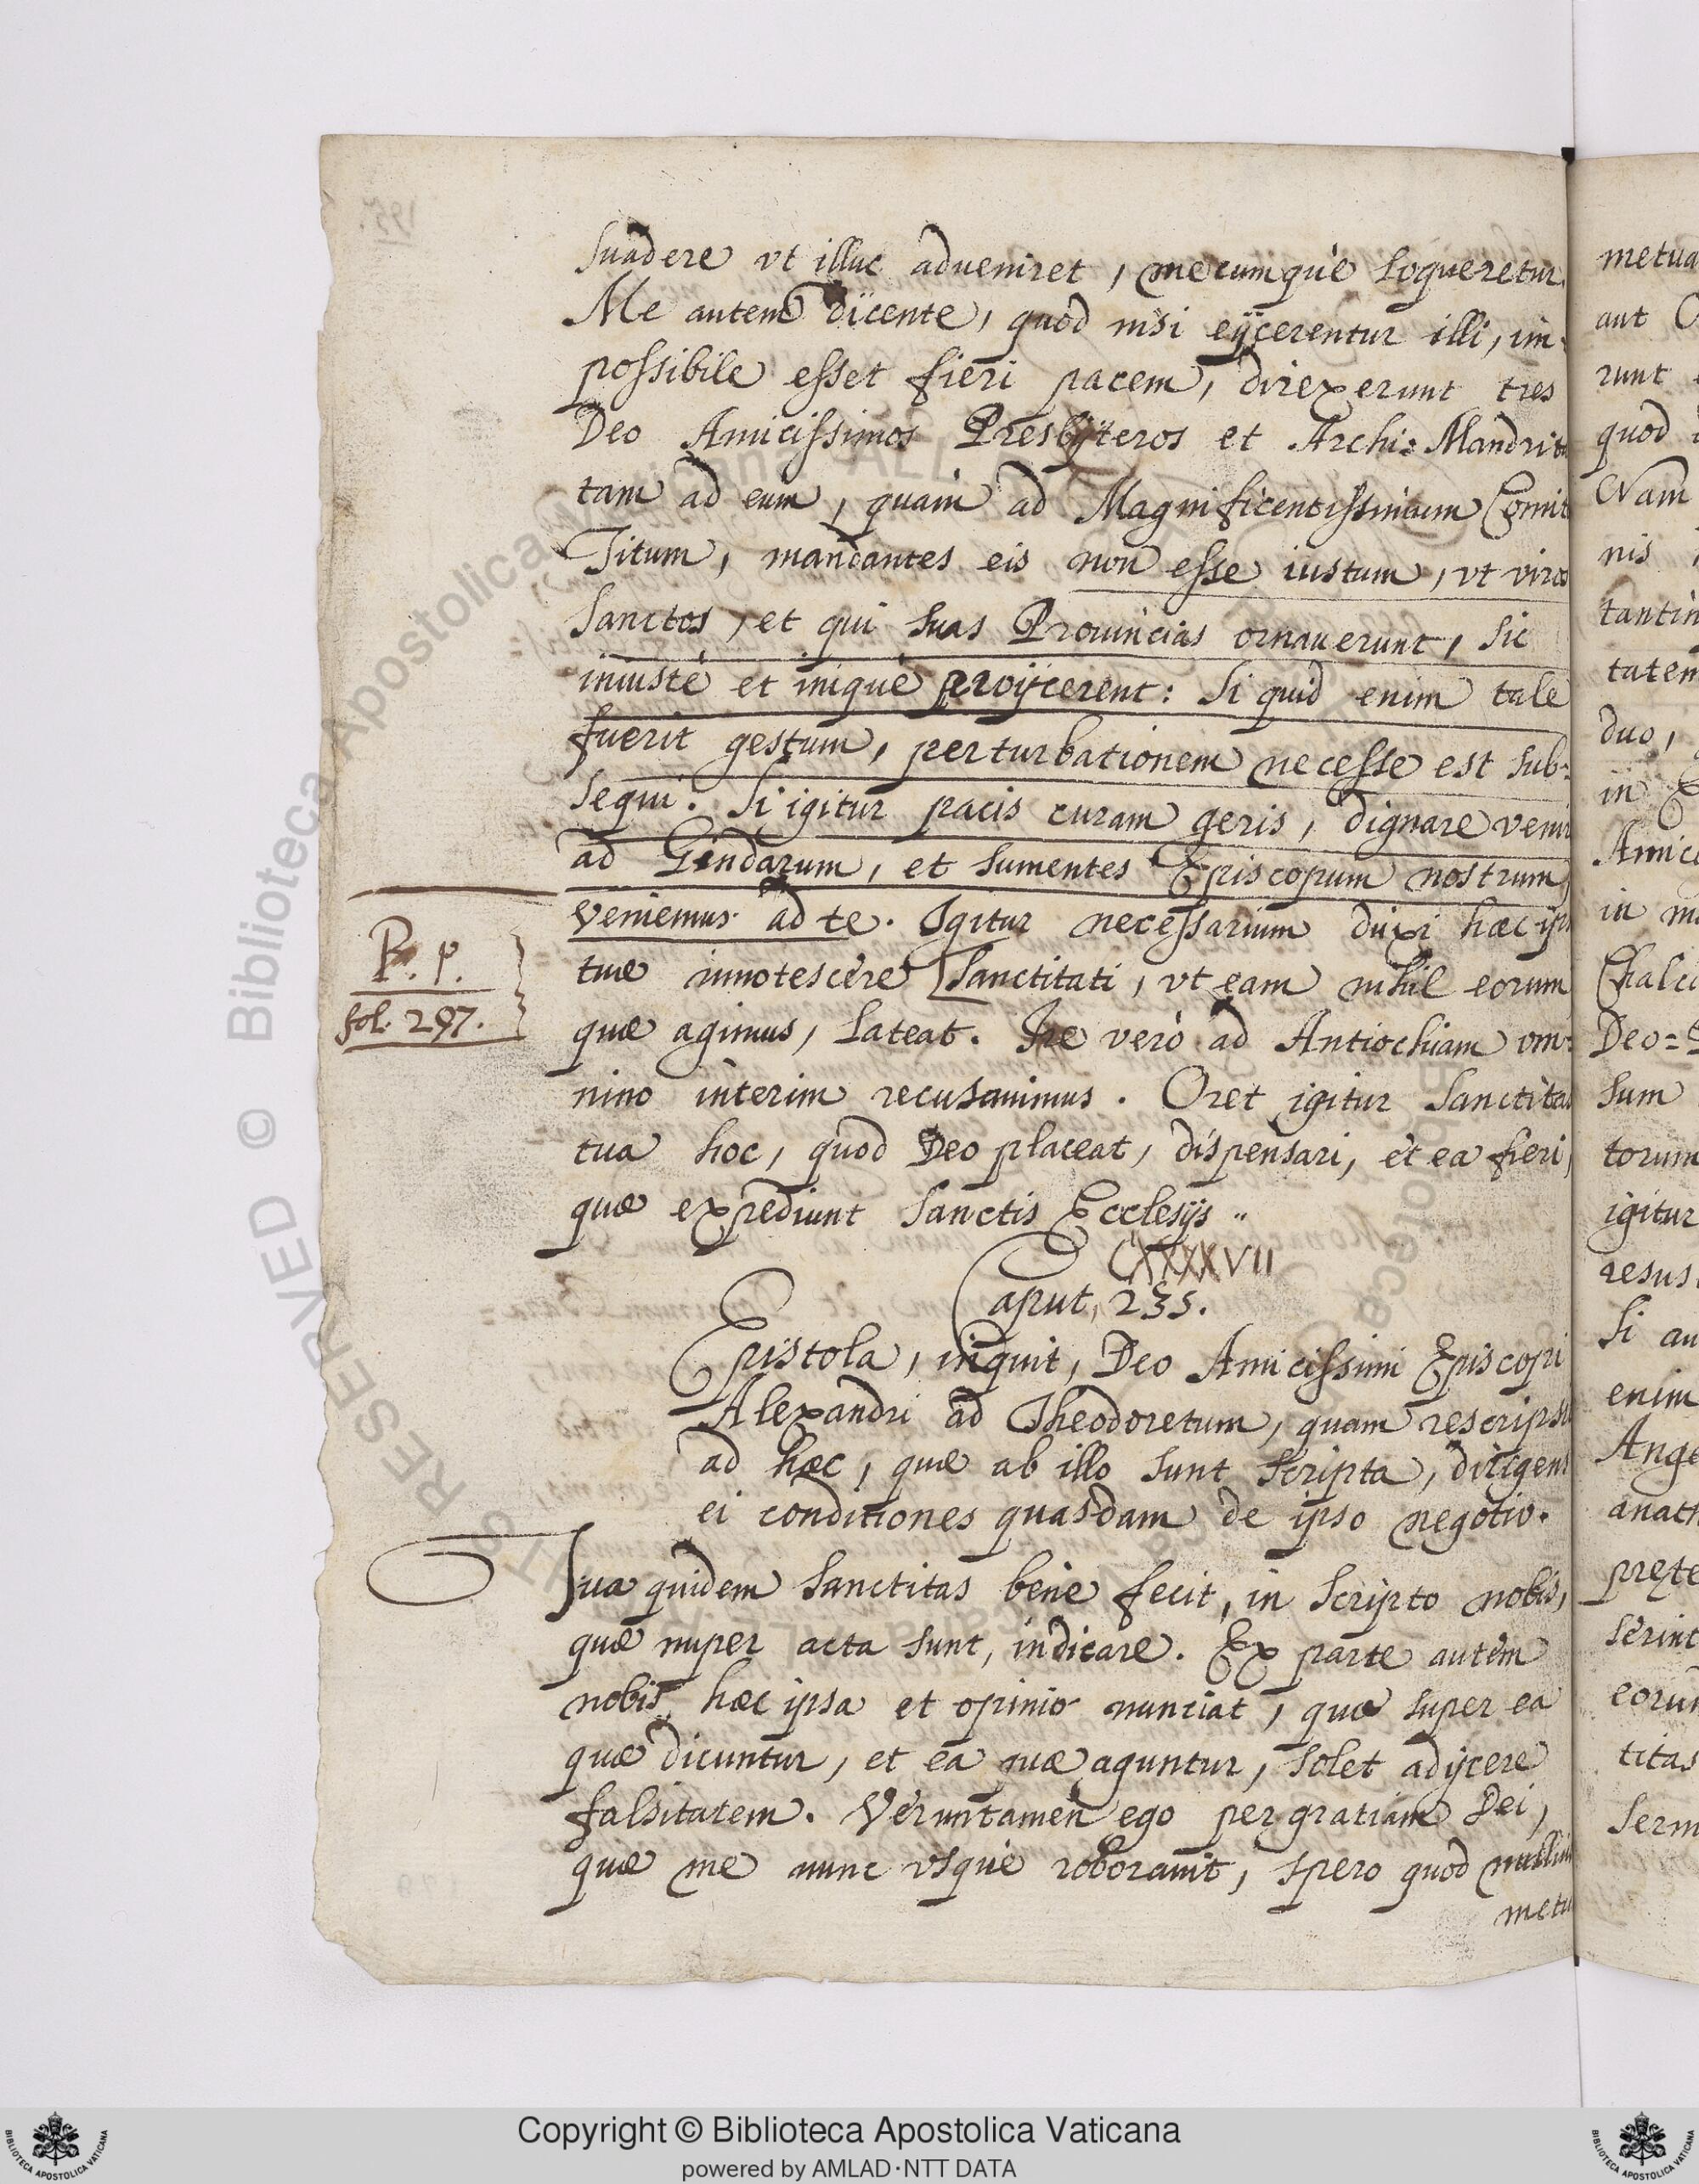 suadere vt illuc adueniret, mecumquè loqueretur.
Me autem dicente, quod nisi eijcerentur illi, im-
possibile esset fieri pacem, direxerunt tres
Deo Amicissimos Presbÿteros et Archi=Mandrit
tam ad eum, quam ad Magnificentissimum Comit
Titum, mandantes eis non esse iustum, vt viros
Sanctos, et qui suas Prouincias ornauerunt, sic
iniustè et iniquè proijcerent: Si quid enim tale
fuerit gestum, perturbationem necesse est sub-
sequi. Si igitur pacis curam geris, dignare venir
ad Gindarum, et sumentes Episcopum nostrum,
veniemus ad te. Igitur necessarium duxi hæc ips
R. p.
fol. 297.
tuæ innotescere [Sanctitati, vt eam nihil eorum
quæ agimus, lateat. Ire verò ad Antiochiam om-
nino interim recusauimus. Oret igitur Sanctitas
tua hoc, quod Deo placeat, dispensari, et ea fieri,
quæ expediunt Sanctis Ecclesijs..
CXXXXVII
Caput, 235.
Epistola, inquit, Deo Amicissimi Episcopi
Alexandri ad Theodoretum, quam rescripsit
ad hæc, quæ ab illo sunt scripta, dirigens
ei conditiones quasdam de ipso negotio.
Tua quidem Sanctitas bene fecit, in scripto nobis,
quæ nuper acta sunt, indicare. Ex parte autem
nobis hæc ipsa et opinio nunciat, quæ super ea
quæ dicuntur, et ea quæ aguntur, solet adijcere
falsitatem. Veruntamen ego per gratiam Dei,
quæ me nunc vsquè roborauit, spero quod nullum
metu
metua
aut
runt
quod
Nam
nis
tantin
tatem
duo,
in
Amici
in
Chalce
Deo=
sum
torum
igitur
resus
Si au
enim
Ange
anath
prete
serint
eorum
titas
serm
Copyright © Biblioteca Apostolica Vaticana
powered by AMLAD·NTT DATA